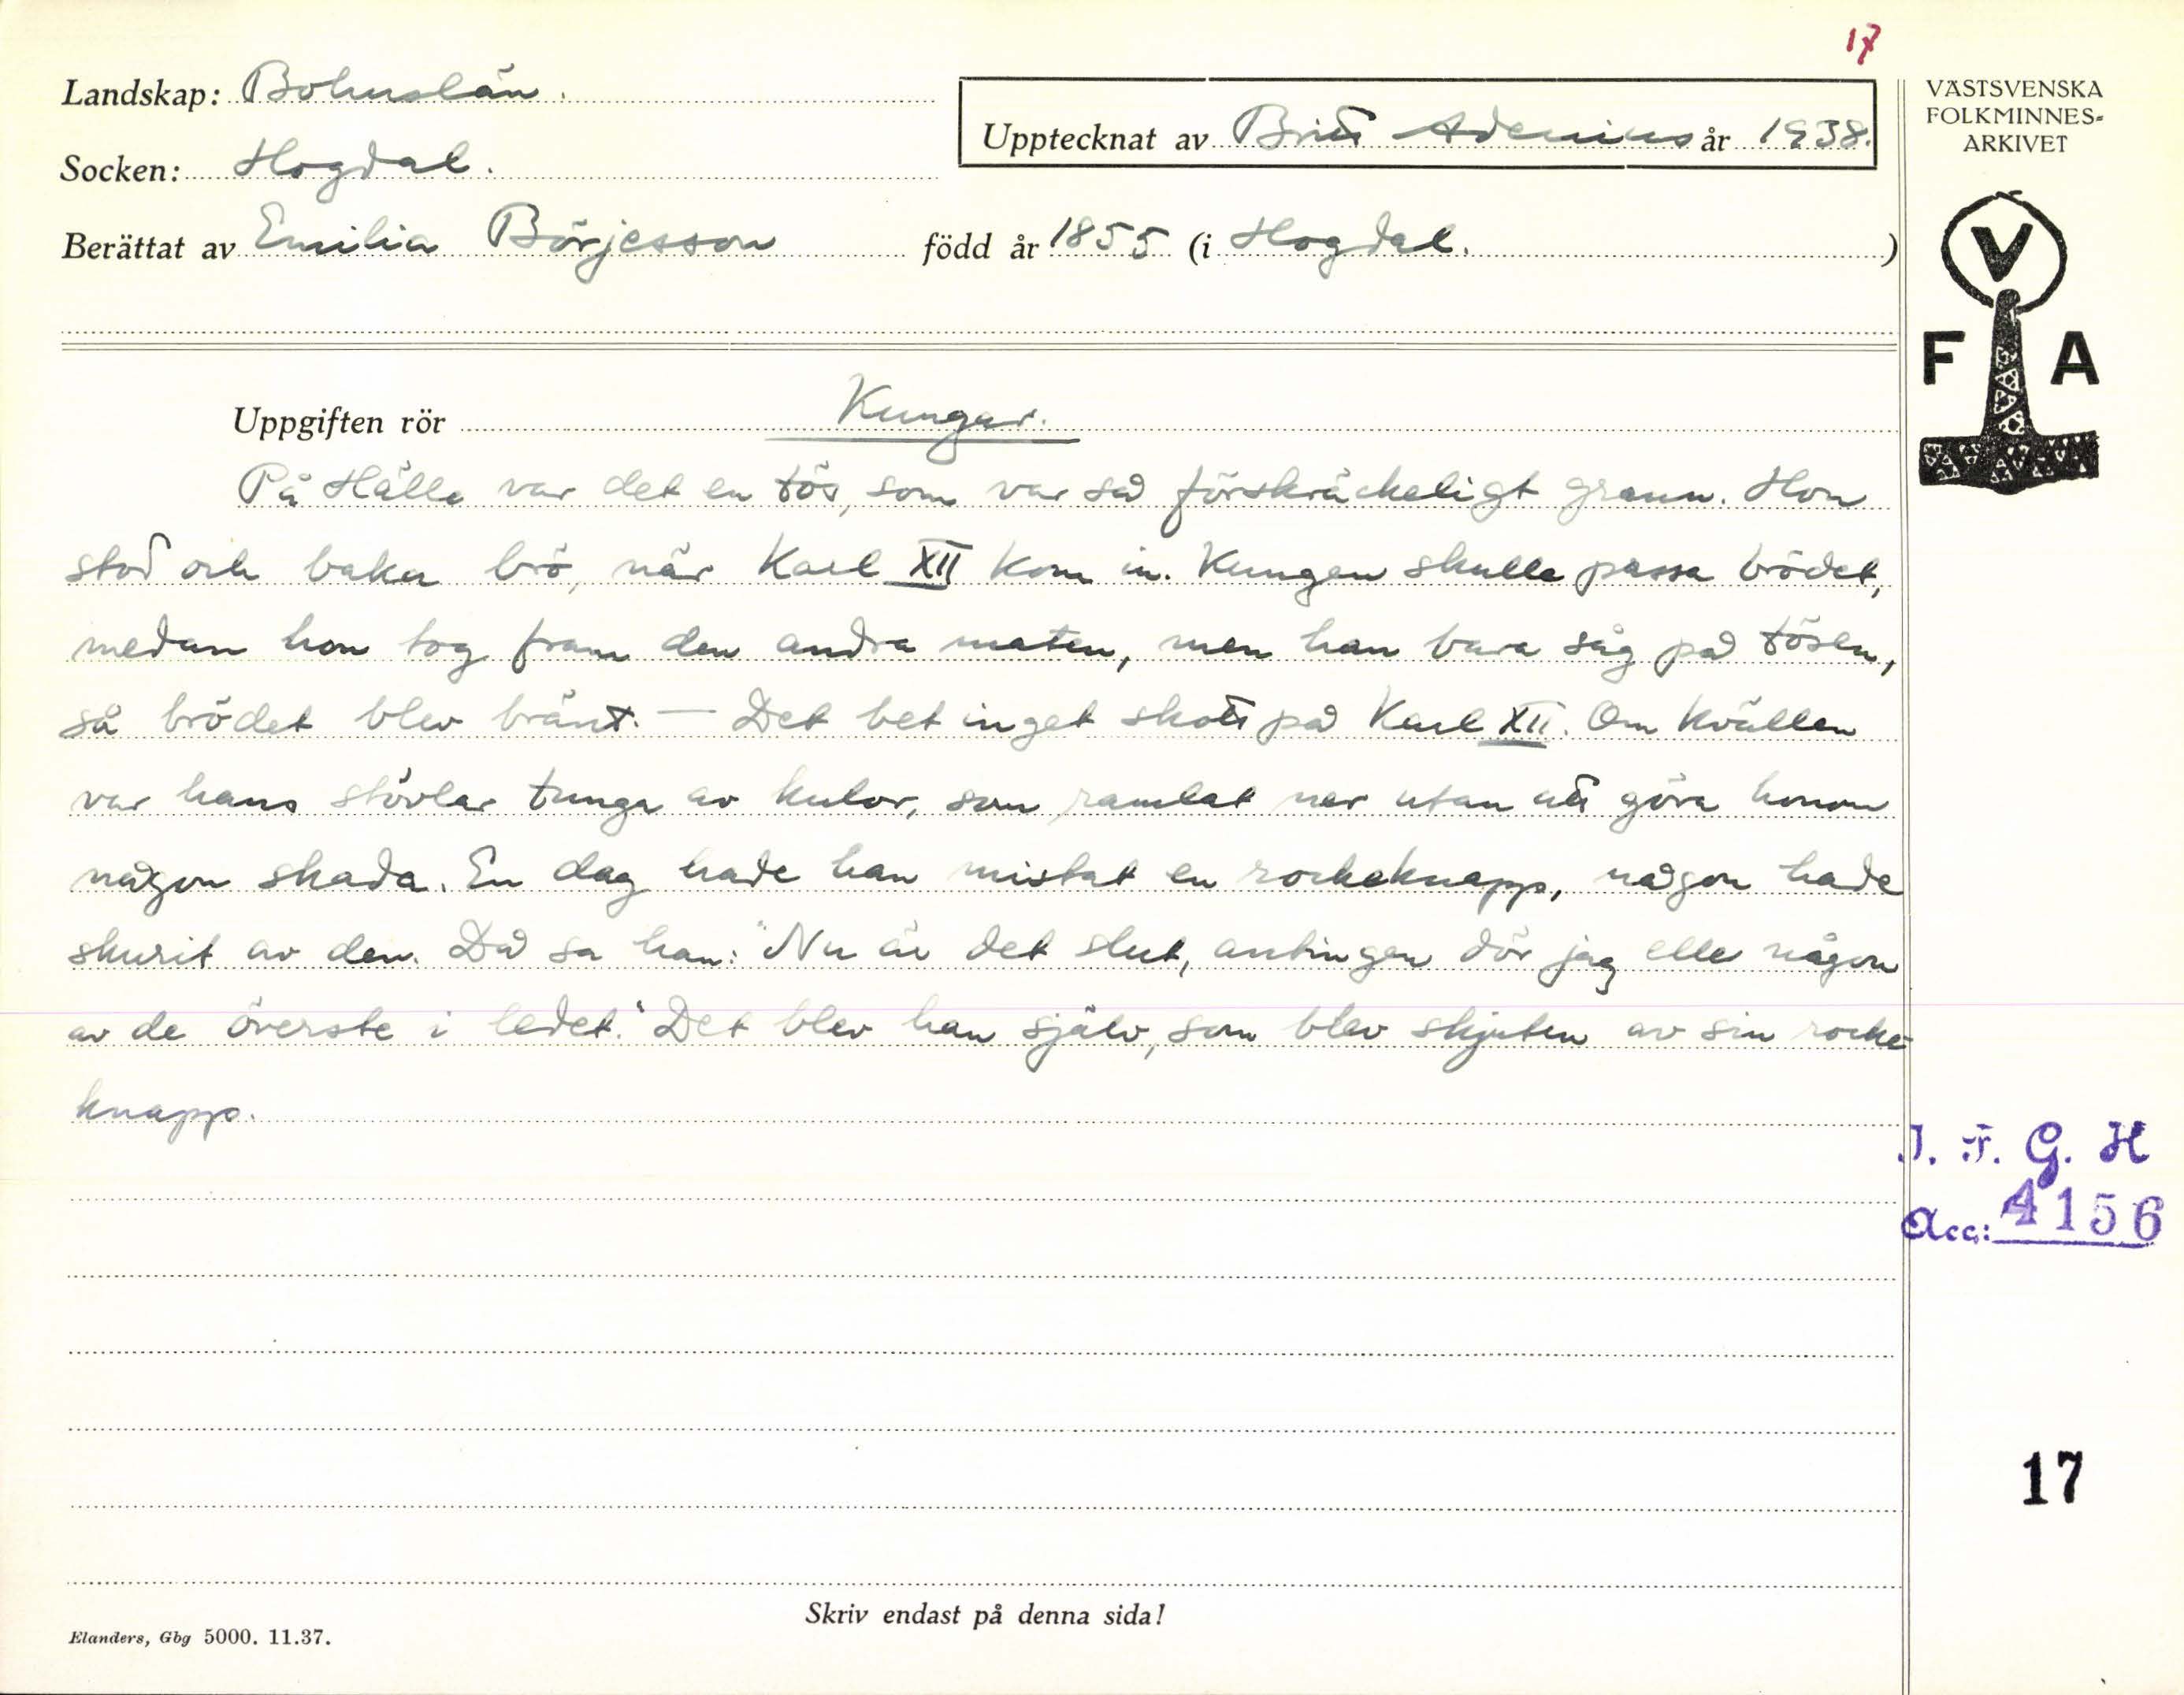 17
Landskap: Bohuslän.
Upptecknat av Britt Adenius år 1938.
VÄSTSVENSKA
FOLKMINNES-
ARKIVET
Socken: Hogdal.
Berättat av Emilia Börjesson född år 1855 (i Hogdal. )
V
F A
Uppgiften rör Kungar.
På Hälle var det en tös, som var så förskräckeligt grann. Hon
stod och baka brö, när Karl XII kom in. Kungen skulle passa brödet,
medan hon tog fram den andra maten, men han bara såg på tösen,
så brödet blev bränt. — Det bet inget skott på Karl XII. Om kvällen
var hans stövlar tunga av kulor, som ramlat ner utan att göra honom
någon skada. En dag hade han mistat en rockeknapp, någon hade
skurit av den. Då sa han: "Nu är det slut, antingen dör jag elle någon
av de överste i ledet." Det blev han själv, som blev skjuten av sin rocke-
knapp.
I. F. G. H
Acc: 4156
17
Skriv endast på denna sida!
Elanders, Gbg 5000. 11.37.